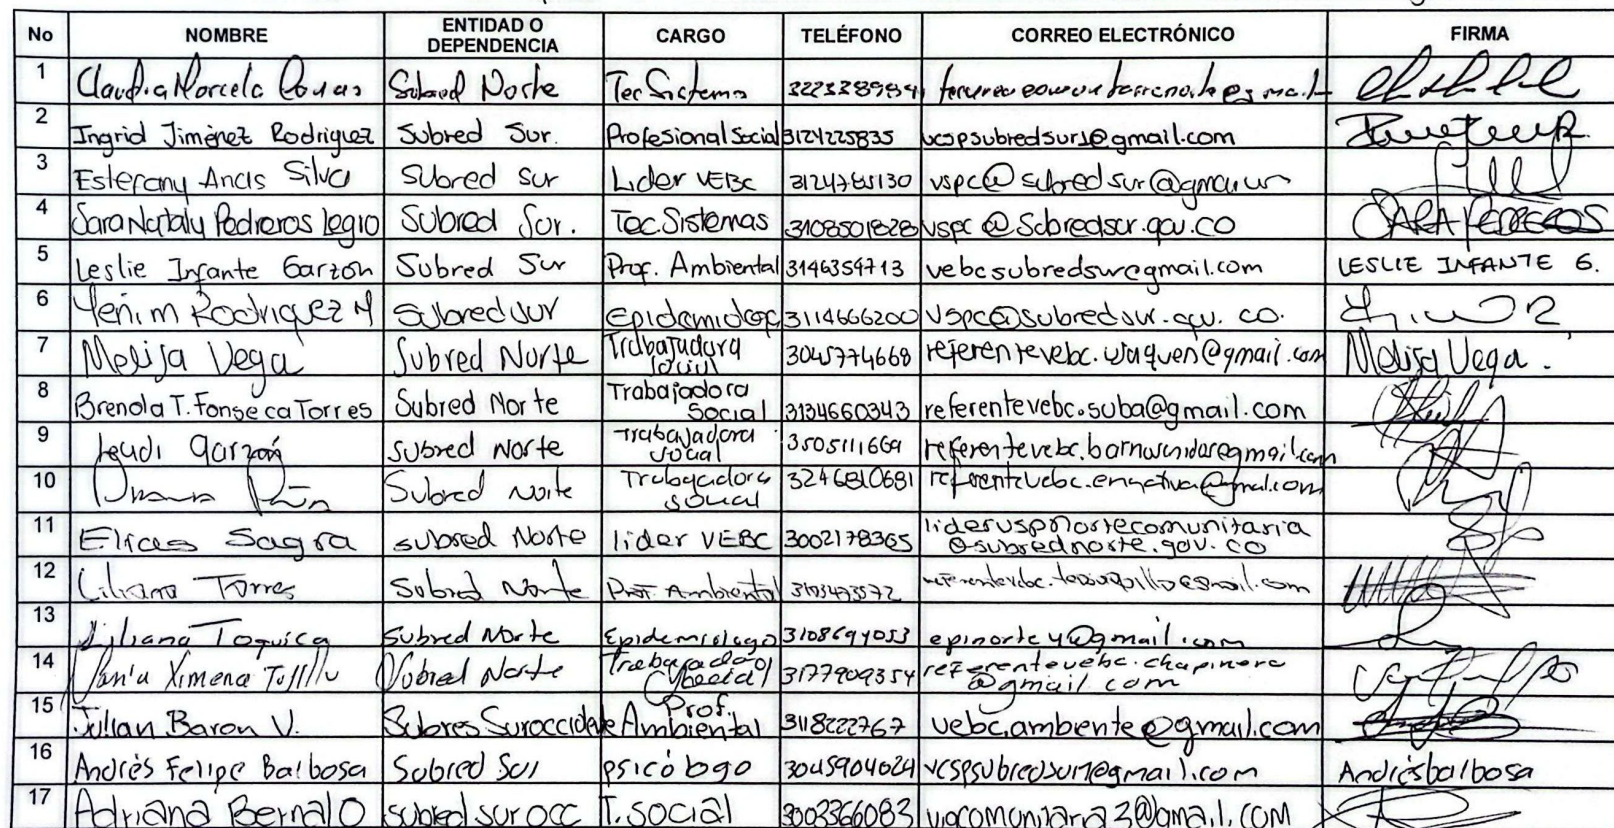 No NOMBRE ENTIDAD O DEPENDENCIA CARGO TELÉFONO CORREO ELECTRÓNICO FIRMA
1 Claudia Marcela Subred Norte Tec Sistema
2 Ingrid Jiménez Rodriguez Subred Sur. Profesional Social 3124225835 vcspsubredsur1@gmail.com
3 Estefany Ancis Silva Subred Sur Lider VEBC 3124785130
4 Sara Nataly Pedreros Subred Sur. Tec. Sistemas 3108501828 vspc@Subredsur.gov.co SARA PEDREROS
5 Leslie Infante Garzón Subred Sur Prof. Ambiental 3146359713 vebcsubredsur@gmail.com LESLIE INFANTE G.
6 Yenim Rodriguez M Subred sur Epidemiolog 3114666200 vspc@subredsur.gov.co.
7 Melisa Vega Subred Norte Trabajadora social 3045774668 referentevebc.usaquen@gmail.com Melisa Vega.
8 Brenda T. Fonseca Torres Subred Norte Trabajadora Social 3134660343 referentevebc.suba@gmail.com
9 Garzón Subred Norte Trabajadora social 3505111669
10 Subred Norte Trabajadora social 3246810681
11 Elias Sagra subred Norte lider VEBC 3002178365 liderusponortecomunitaria
@subrednorte.gov.co
12 Liliana Torres Subred Norte Prof. Ambiental
13 Liliana Toquica Subred Norte Epidemiologo 3108691053 epinorte4@gmail.com
14 Ximena Subred Norte Trabajadora Social 3177909354 referentevebc.chapinero
@gmail.com
15 Julian Baron V. Subres Suroccidente Prof. Ambiental 3118222767 vebc.ambiente@gmail.com
16 Andrés Felipe Balbosa Subred Sur psicólogo 3045904024 vcspsubredsur1@gmail.com Andrésbalbosa
17 Adriana Bernal O subred sur occ T. social 3003366083 @gmail.com